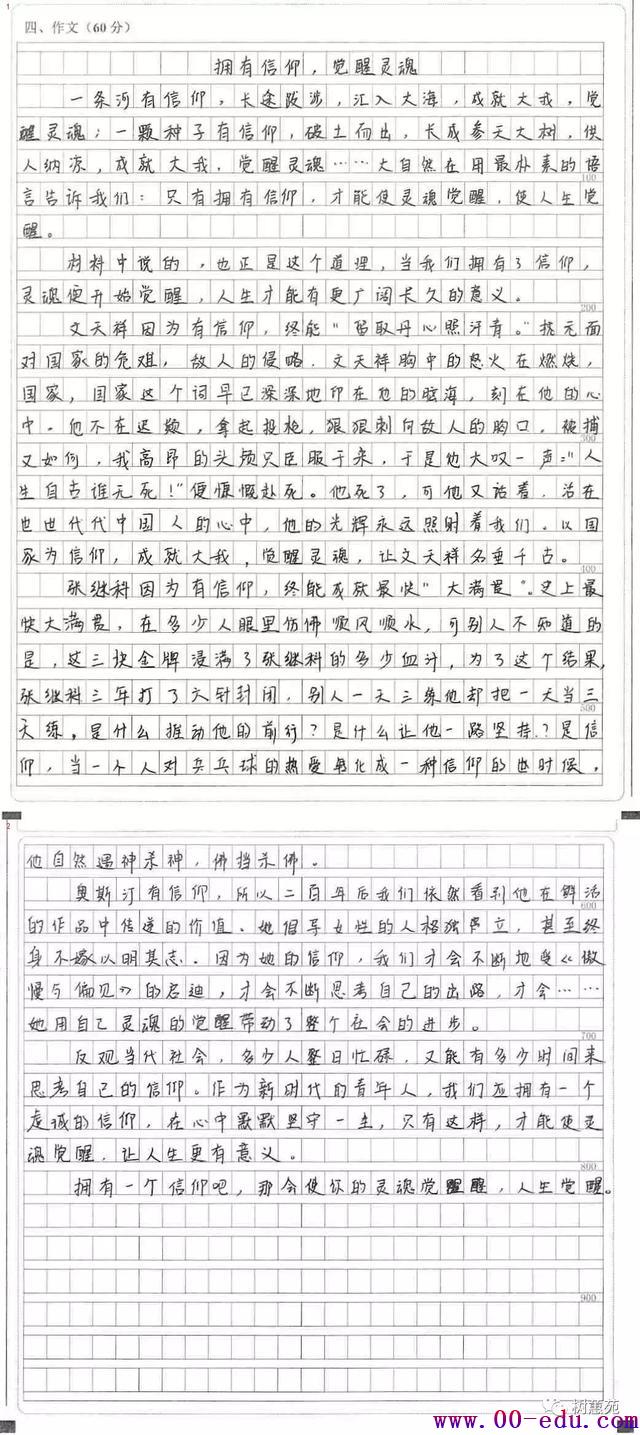 1
四、作文（60分）
拥有信仰，觉醒灵魂
一条河有信仰，长途跋涉，汇入大海，成就大我，觉
醒灵魂；一颗种子有信仰，破土而出，长成参天大树，供
人纳凉，成就大我，觉醒灵魂……大自然在用最朴素的语
100
言告诉我们：只有拥有信仰，才能使灵魂觉醒，使人生觉
醒。
材料中说的，也正是这个道理，当我们拥有了信仰，
灵魂便开始觉醒，人生才能有更广阔长久的意义。
200
文天祥因为有信仰，终能“留取丹心照汗青。”抗元面
对国家的危难，敌人的侵略，文天祥胸中的怒火在燃烧，
国家，国家这个词早已深深地印在他的脑海，刻在他的心
中。他不在迟疑，拿起投枪，狠狠刺向敌人的胸口，被捕
300
又如何，我高昂的头颅只臣服于宋，于是他大叹一声：“人
生自古谁无死！”便慷慨赴死。他死了，可他又活着，活在
世世代代中国人的心中，他的光辉永远照射着我们。以国
家为信仰，成就大我，觉醒灵魂，让文天祥名垂千古。
400
张继科因为有信仰，终能成就最快“大满贯”。史上最
快大满贯，在多少人眼里仿佛顺风顺水，可别人不知道的
是，这三块金牌浸满了张继科的多少血汁，为了这个结果，
张继科三年打了六针封闭，别人一天三练他却把一天当三
500
天练。是什么推动他的前行？是什么让他一路坚持？是信
仰，当一个人对乒乓球的热爱转化成一种信仰的的时候，
2
他自然遇神杀神，佛挡杀佛。
奥斯汀有信仰，所以二百年后我们依然看到他在鲜活
600
的作品中传递的价值。她倡导女性的人格独立，甚至终
身不嫁以明其志。因为她的信仰，我们才会不断地受《傲
慢与偏见》的启迪，才会不断思考自己的出路，才会……
她用自己灵魂的觉醒带动了整个社会的进步。
700
反观当代社会，多少人整日忙碌，又能有多少时间来
思考自己的信仰。作为新时代的青年人，我们应拥有一个
虔诚的信仰，在心中默默坚守一生，只有这样，才能使灵
魂觉醒，让人生更有意义。
800
拥有一个信仰吧，那会使你的灵魂觉醒，人生觉醒。
900
树蕙苑
www.00-edu.com